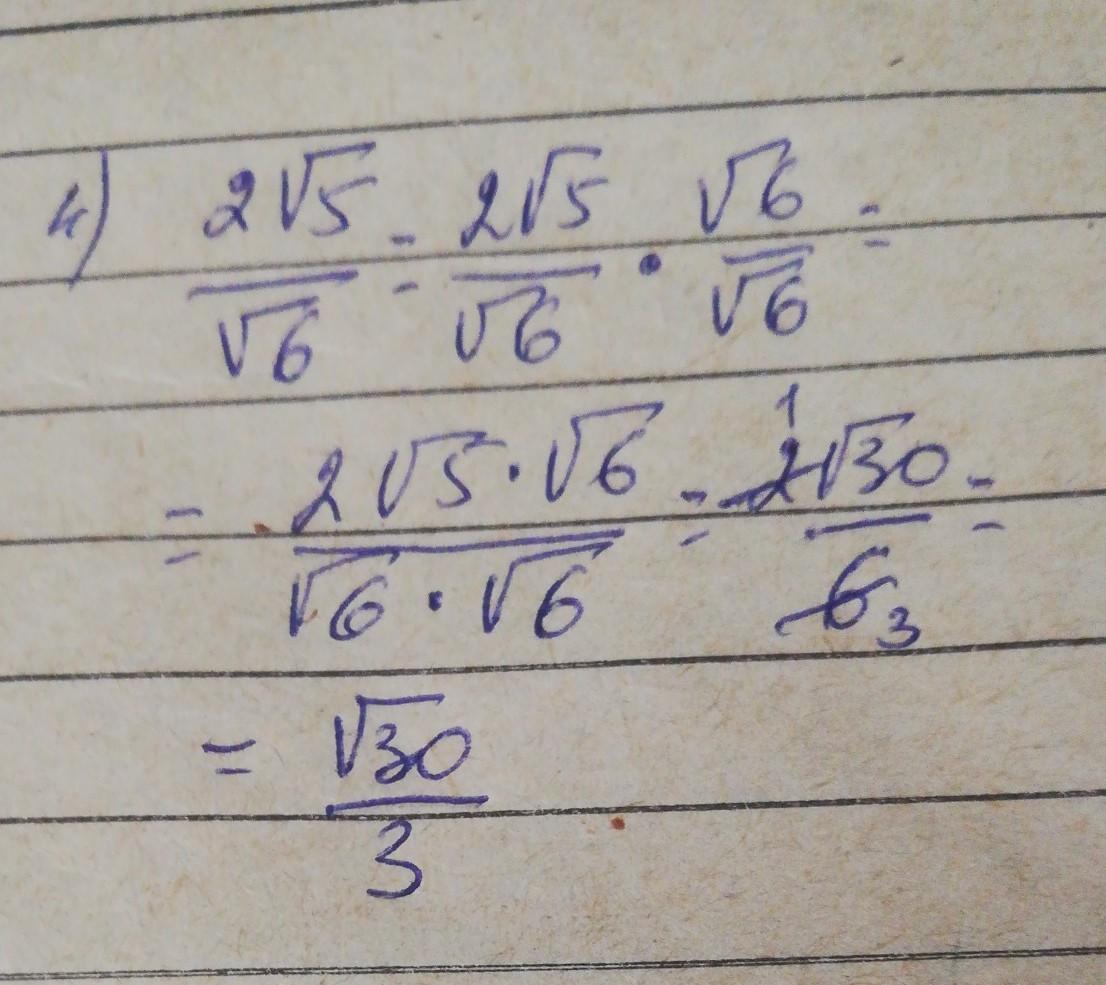 4) 2√5/√6 = 2√5/√6 · √6/√6 =
= 2√5·√6/√6·√6 = 1 2√30/6 3 =
= √30/3